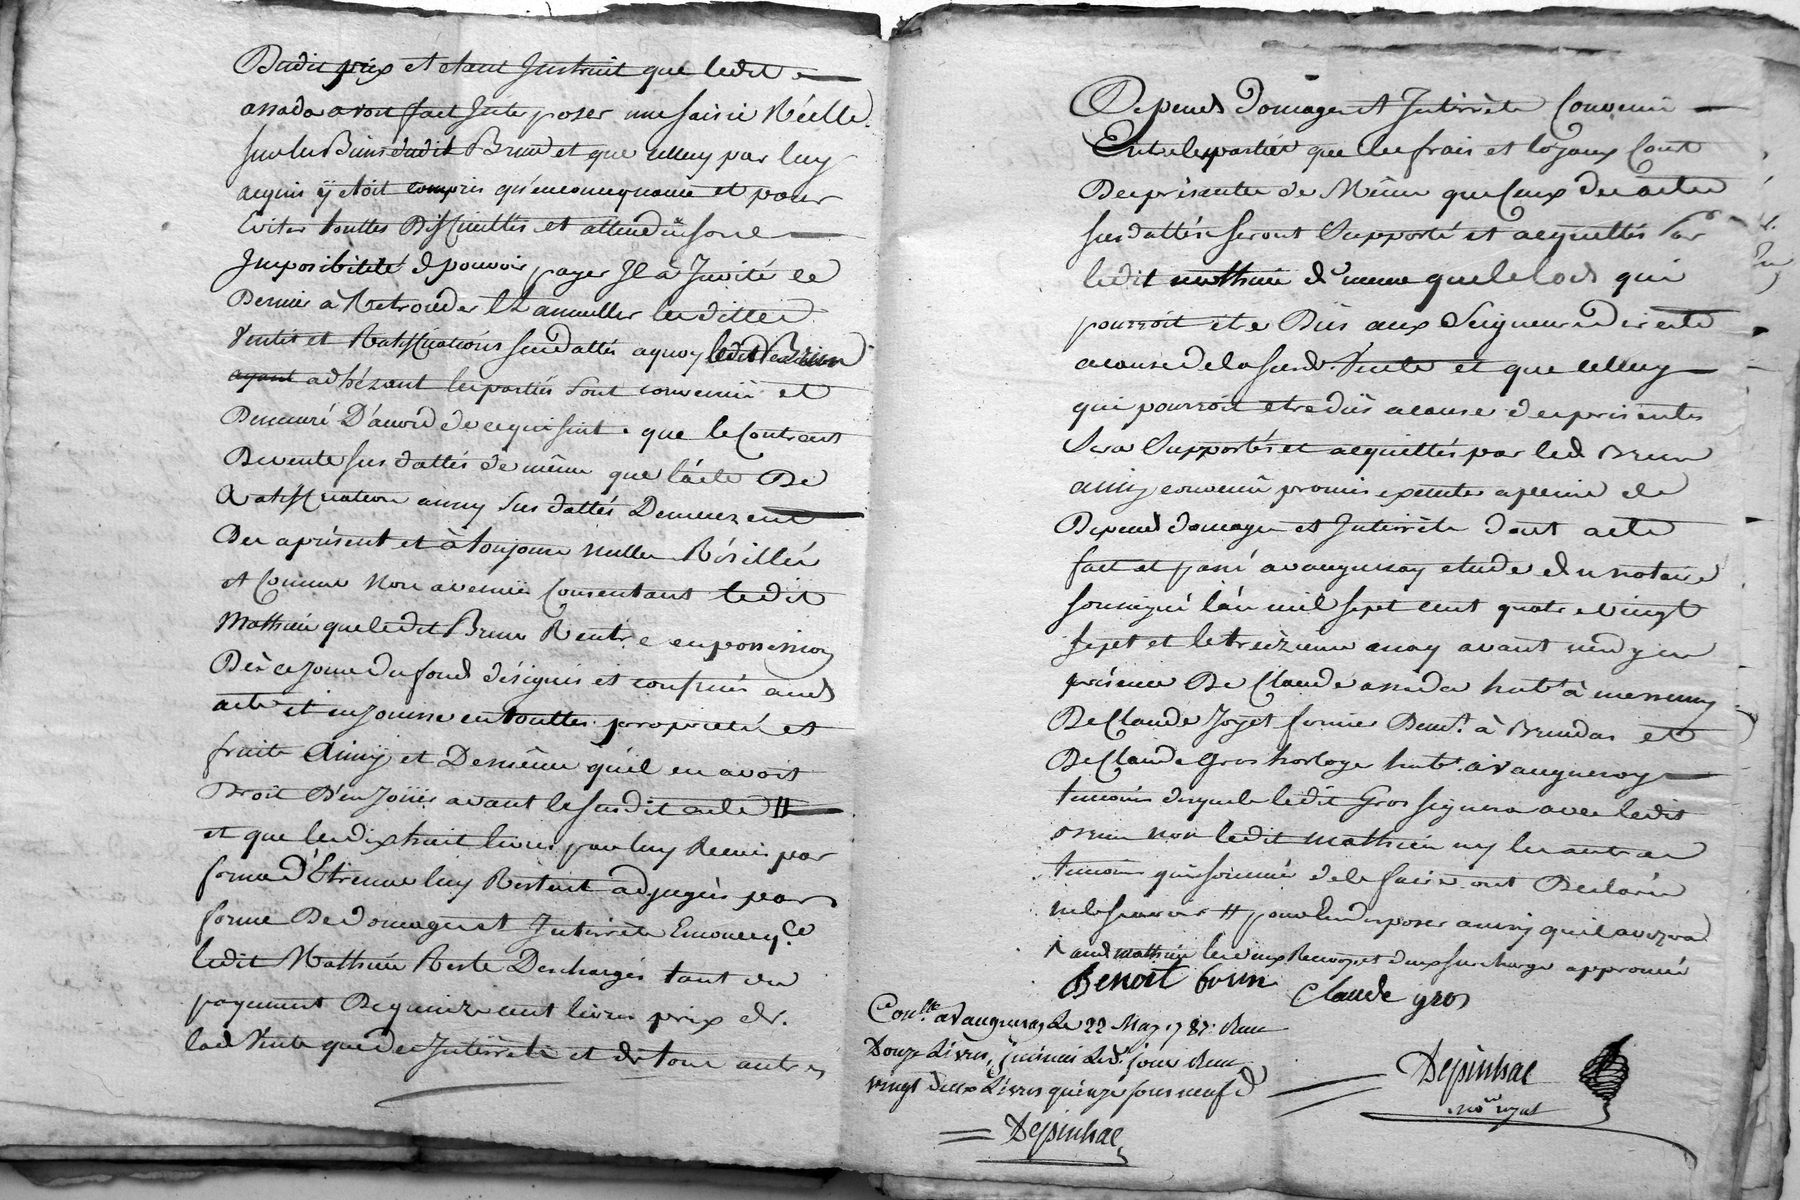 Dudit prix et etant Instruit que ledit
assada avoit fait Inter poser une saisie Réelle
sur les Biens dudit Brun et que celluy par luy
acquis ÿ etoit compris qu'encouneyname et pour
Eviter touttes Difficulttés et attendû son
Imposibiliteté d pouvoir payer Il a Invité ce
Dernier à Retroceder Et annuller lesdittes
Ventes et Ratiffications susdattés a quoy ledit Brun
ayant adhézant les parties sont convenuës et
Demeuré D'acord de ce qui suit. que le Contract
De vente sus dattés de même que l'acte De
Ratiffication aussy sus dattés Demeurent
Des apresent et à toujours nulles Résillés
et Comme Non avenuës Consentant ledit
Mathieu que ledit Brun Rentre en possession
Dès ce jour du fond désignés et confinés aud
acte et en jouisse en touttes proprieté et
fruits Ainsy et De même qu'il en avoit
Droit D'en Joüir avant le susdit acte #
et que les dix huit livres par luy Recus par
forme d'Etrenne luy Restent adjugés par
forme De domages et Interrêts Emoney.ce
ledit Mathieu Reste Deschargés tant du
payement De quinze cent livres prix de
lad Vente que des Interrêts et de tous autres
Depends domages et Interrêts Convenu
Entre les parties que les frais et loyaux Cout
Des présentes de Même que Ceux des actes
susdattés seront Supporté et acquittés Par
ledit mathieu de meme que le lods qui
pourroit etre Dûs aux Seigneurs Directe
a cause de la susd. Vente et que celluy
qui pourroit etre dûs a cause des presentes
Sera Supportés et acquittés par led Brun
ainsy convenu promis executer a peine de
Depends domages et Interrêts dont acte
fait et passé a vaugneray etude du notaire
soussigné l'an mil sept cent quatre vingt
sept et le treizieme may avant midy en
présence De Claude assada habt à messimy
De Claude Joyet fermier Demt à Brindas et
De Claude Gros horloger habt à Vaugneray
temoins desquels ledit Gros signera avec ledit
Brun non ledit Mathieu ny les autres
temoins qui sommés de le faire ont Declarés
ne le scavoir # pour lui disposer ainsy qu'il avisera
# aud mathieu les deux Renvoy et deux surcharge approuvés
Benoit brun
Claude gros
Con.lle a Vaugneray Le 22 May 1787. Reçu
Douze Livres, Insinué Led. jour Reçu
vingt deux Livres quinze sous neuf d
Depinhac
Depinhac
no.re royal